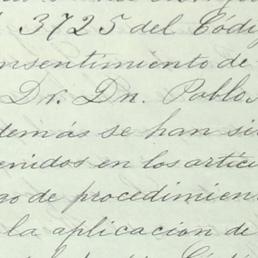 3725 del Códi
nsentimiento de
Dr. Dn. Pablo
demás se han si
enidos en los artícu
go de procedimien
la aplicacion de